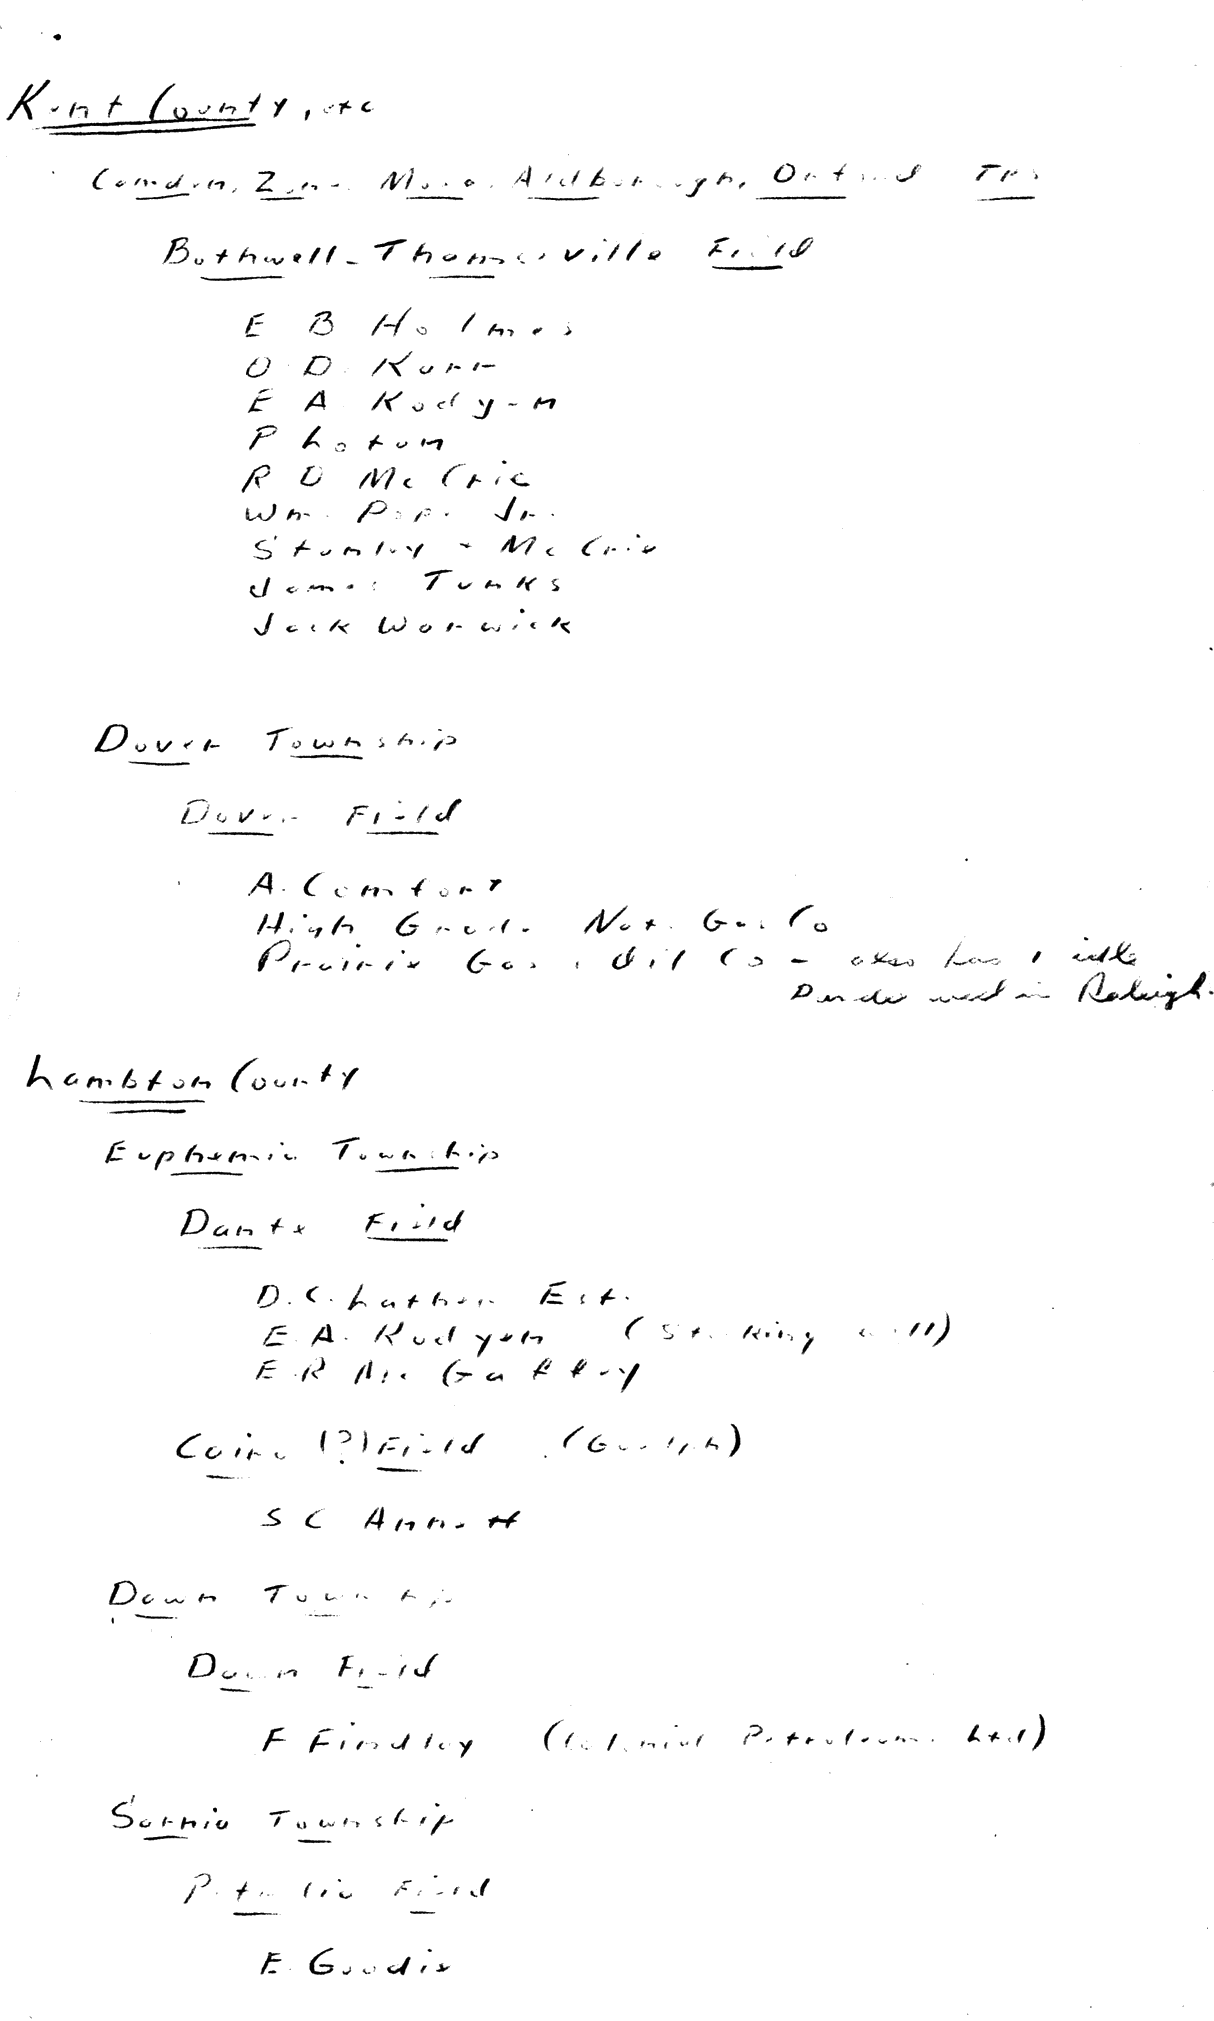 Kent County, etc
Camden, Zone, Mosa, Aldborough, Orford Tps
Bothwell-Thamesville Field
E B Holmes
O. D. Kerr
E A. Kodyen
P Laton
R D McCrie
Wm. Pope Jr.
Stanley + McCrie
James Tunks
Jack Warwick
Dover Township
Dover Field
A. Comfort
High Grade Nat. Gas Co
Prairie Gas & Oil Co - also has 1 idle
well in Raleigh.
Lambton County
Euphemia Township
Dante Field
D. C. Lather Est.
E. A. Kodyen (Stroking well)
E. R. McGaffey
Cairo (?) Field (Guelph)
S C Annett
Dawn Township
Dawn Field
F Findley (Colonial Petroleums Ltd)
Sarnia Township
Petrolia Field
E. Goodie